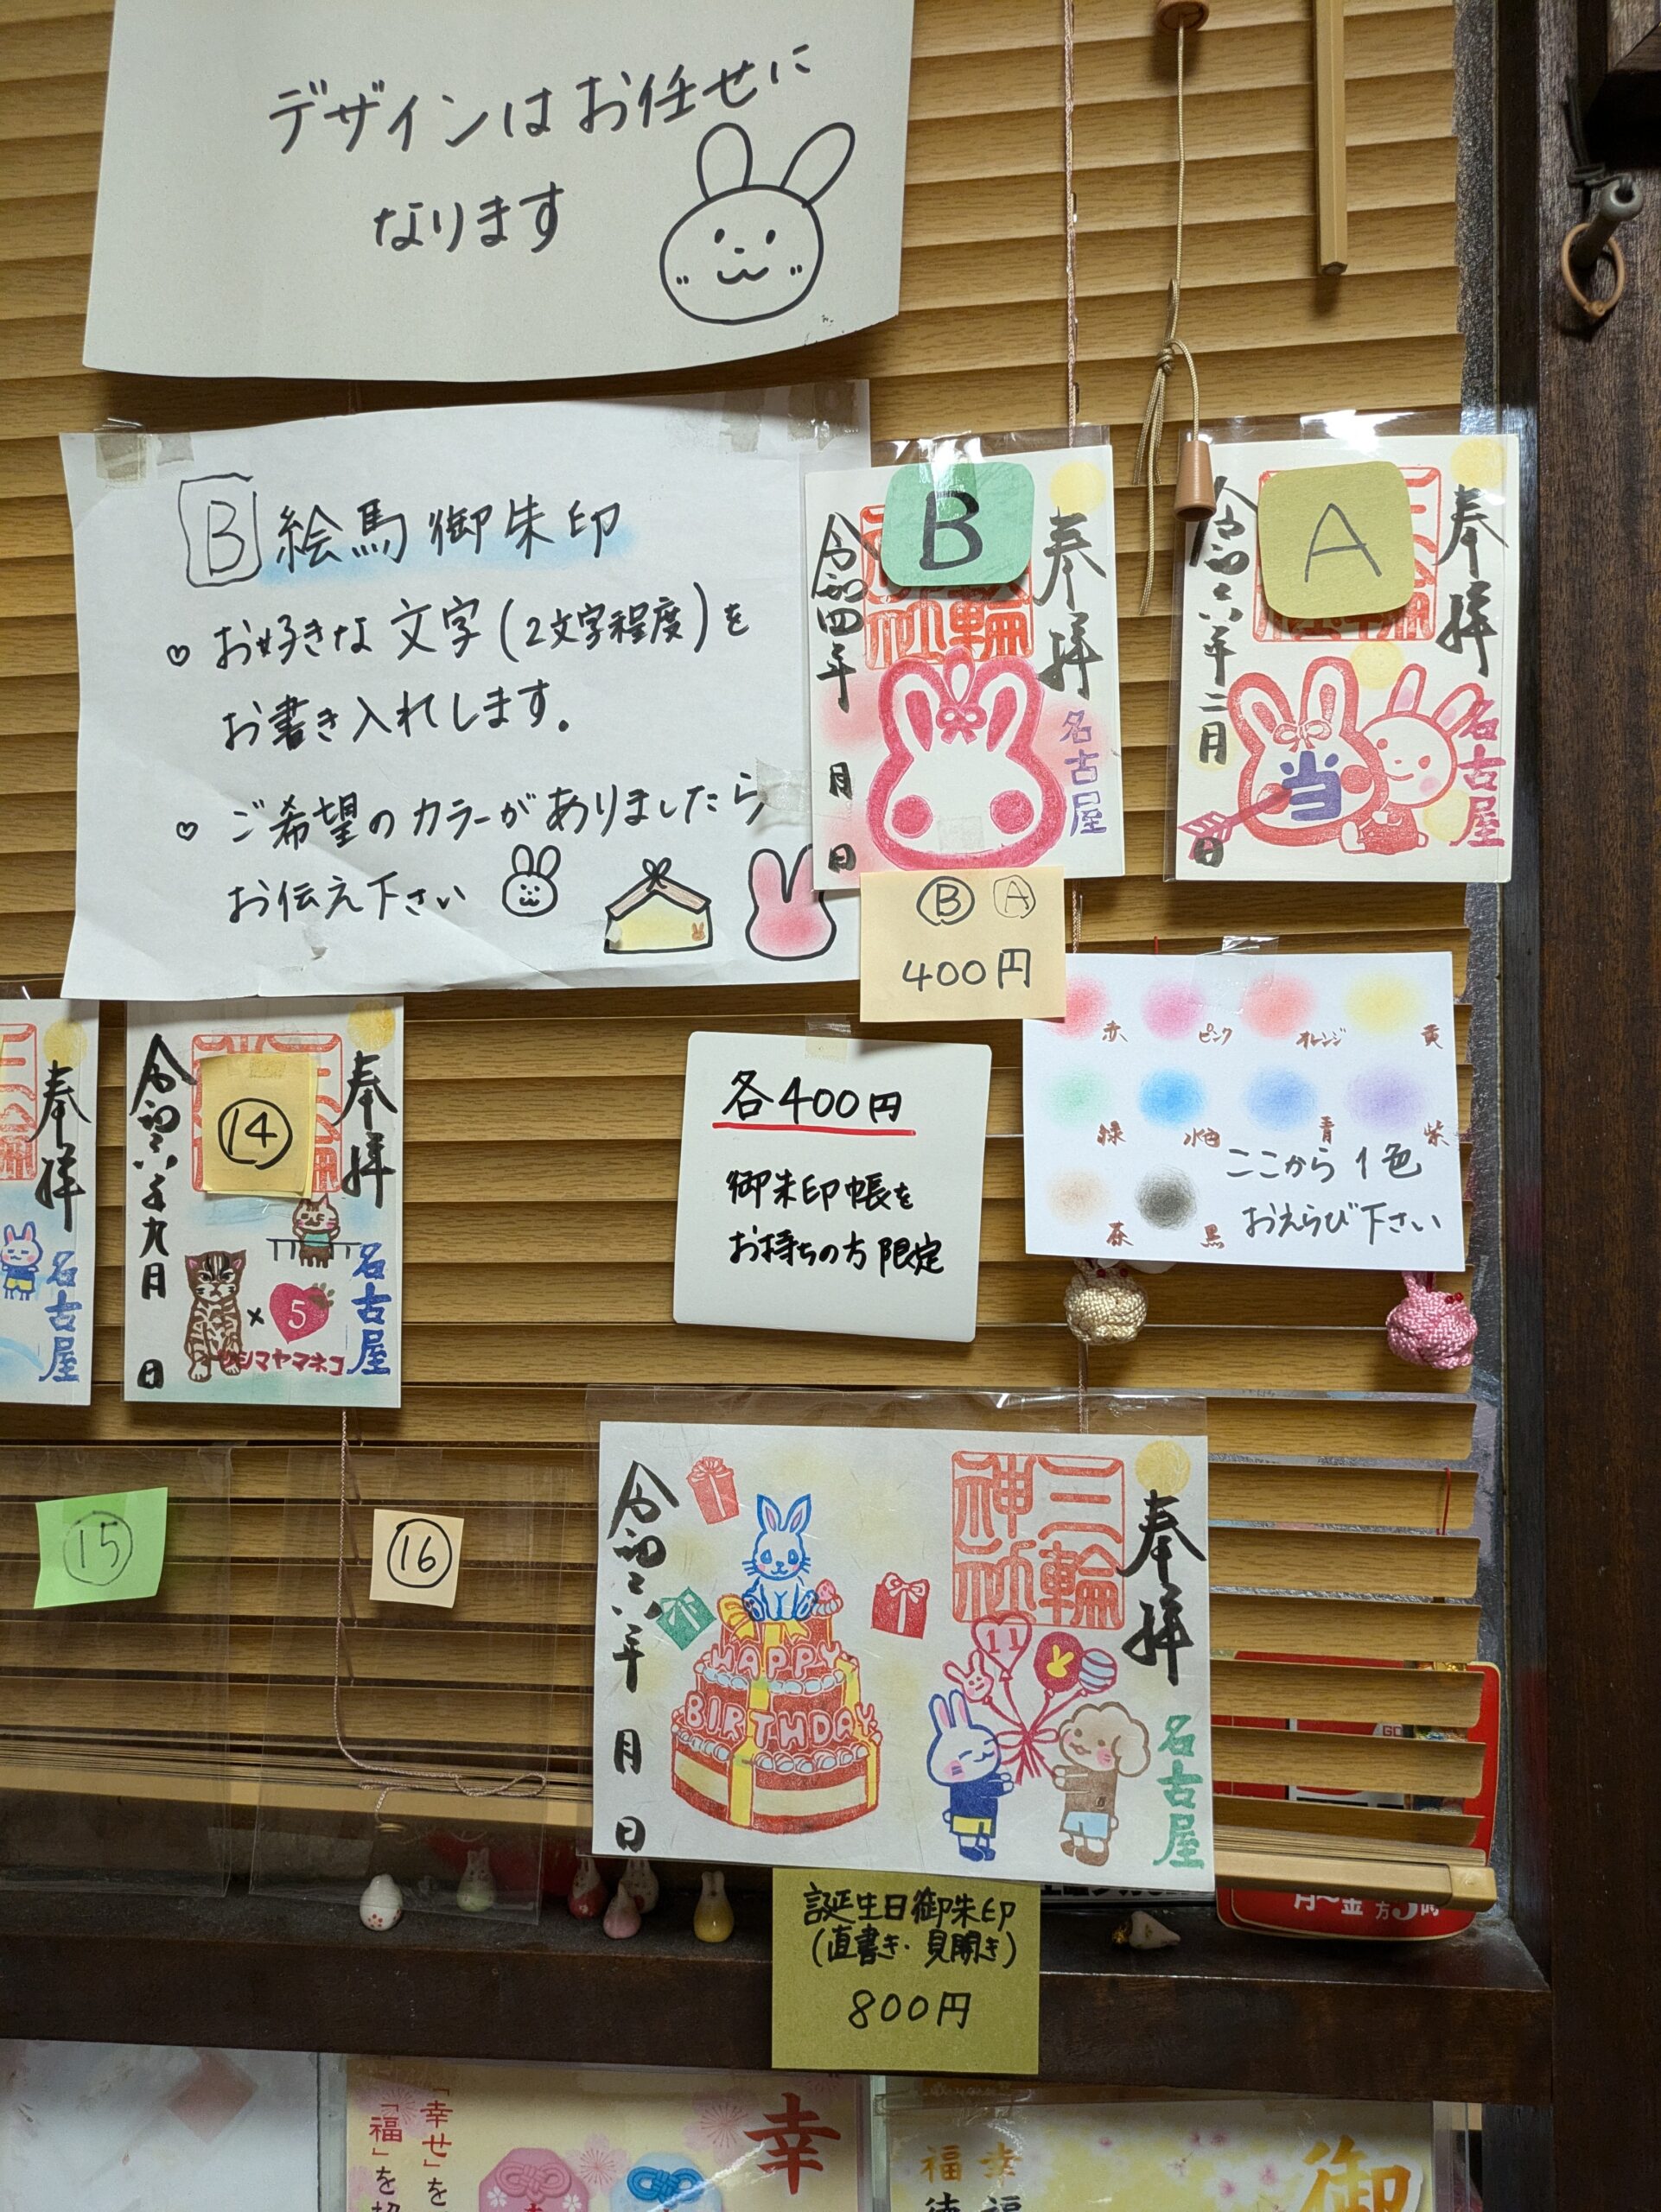 デザインはお任せに
なります
B 絵馬御朱印
♡ お好きな文字(2文字程度)を
お書き入れします。
♡ ご希望のカラーがありましたら
お伝え下さい
B
奉拝
名古屋
令和四年 月 日
A
奉拝
名古屋
当
令和六年二月 日
Ⓑ Ⓐ
400円
赤 ピンク オレンジ 黄
緑 水色 青 紫
茶 黒
ここから1色
おえらび下さい
各400円
御朱印帳を
お持ちの方限定
奉拝
名古屋
⑭
奉拝
名古屋
令和六年九月 日
×5
ツシマヤマネコ
⑮
⑯
奉拝
三輪
神社
名古屋
11
HAPPY
BIRTHDAY
令和六年 月 日
誕生日御朱印
(直書き・見開き)
800円
月〜金
「幸せ」を
「福」を
幸
御
幸福
福